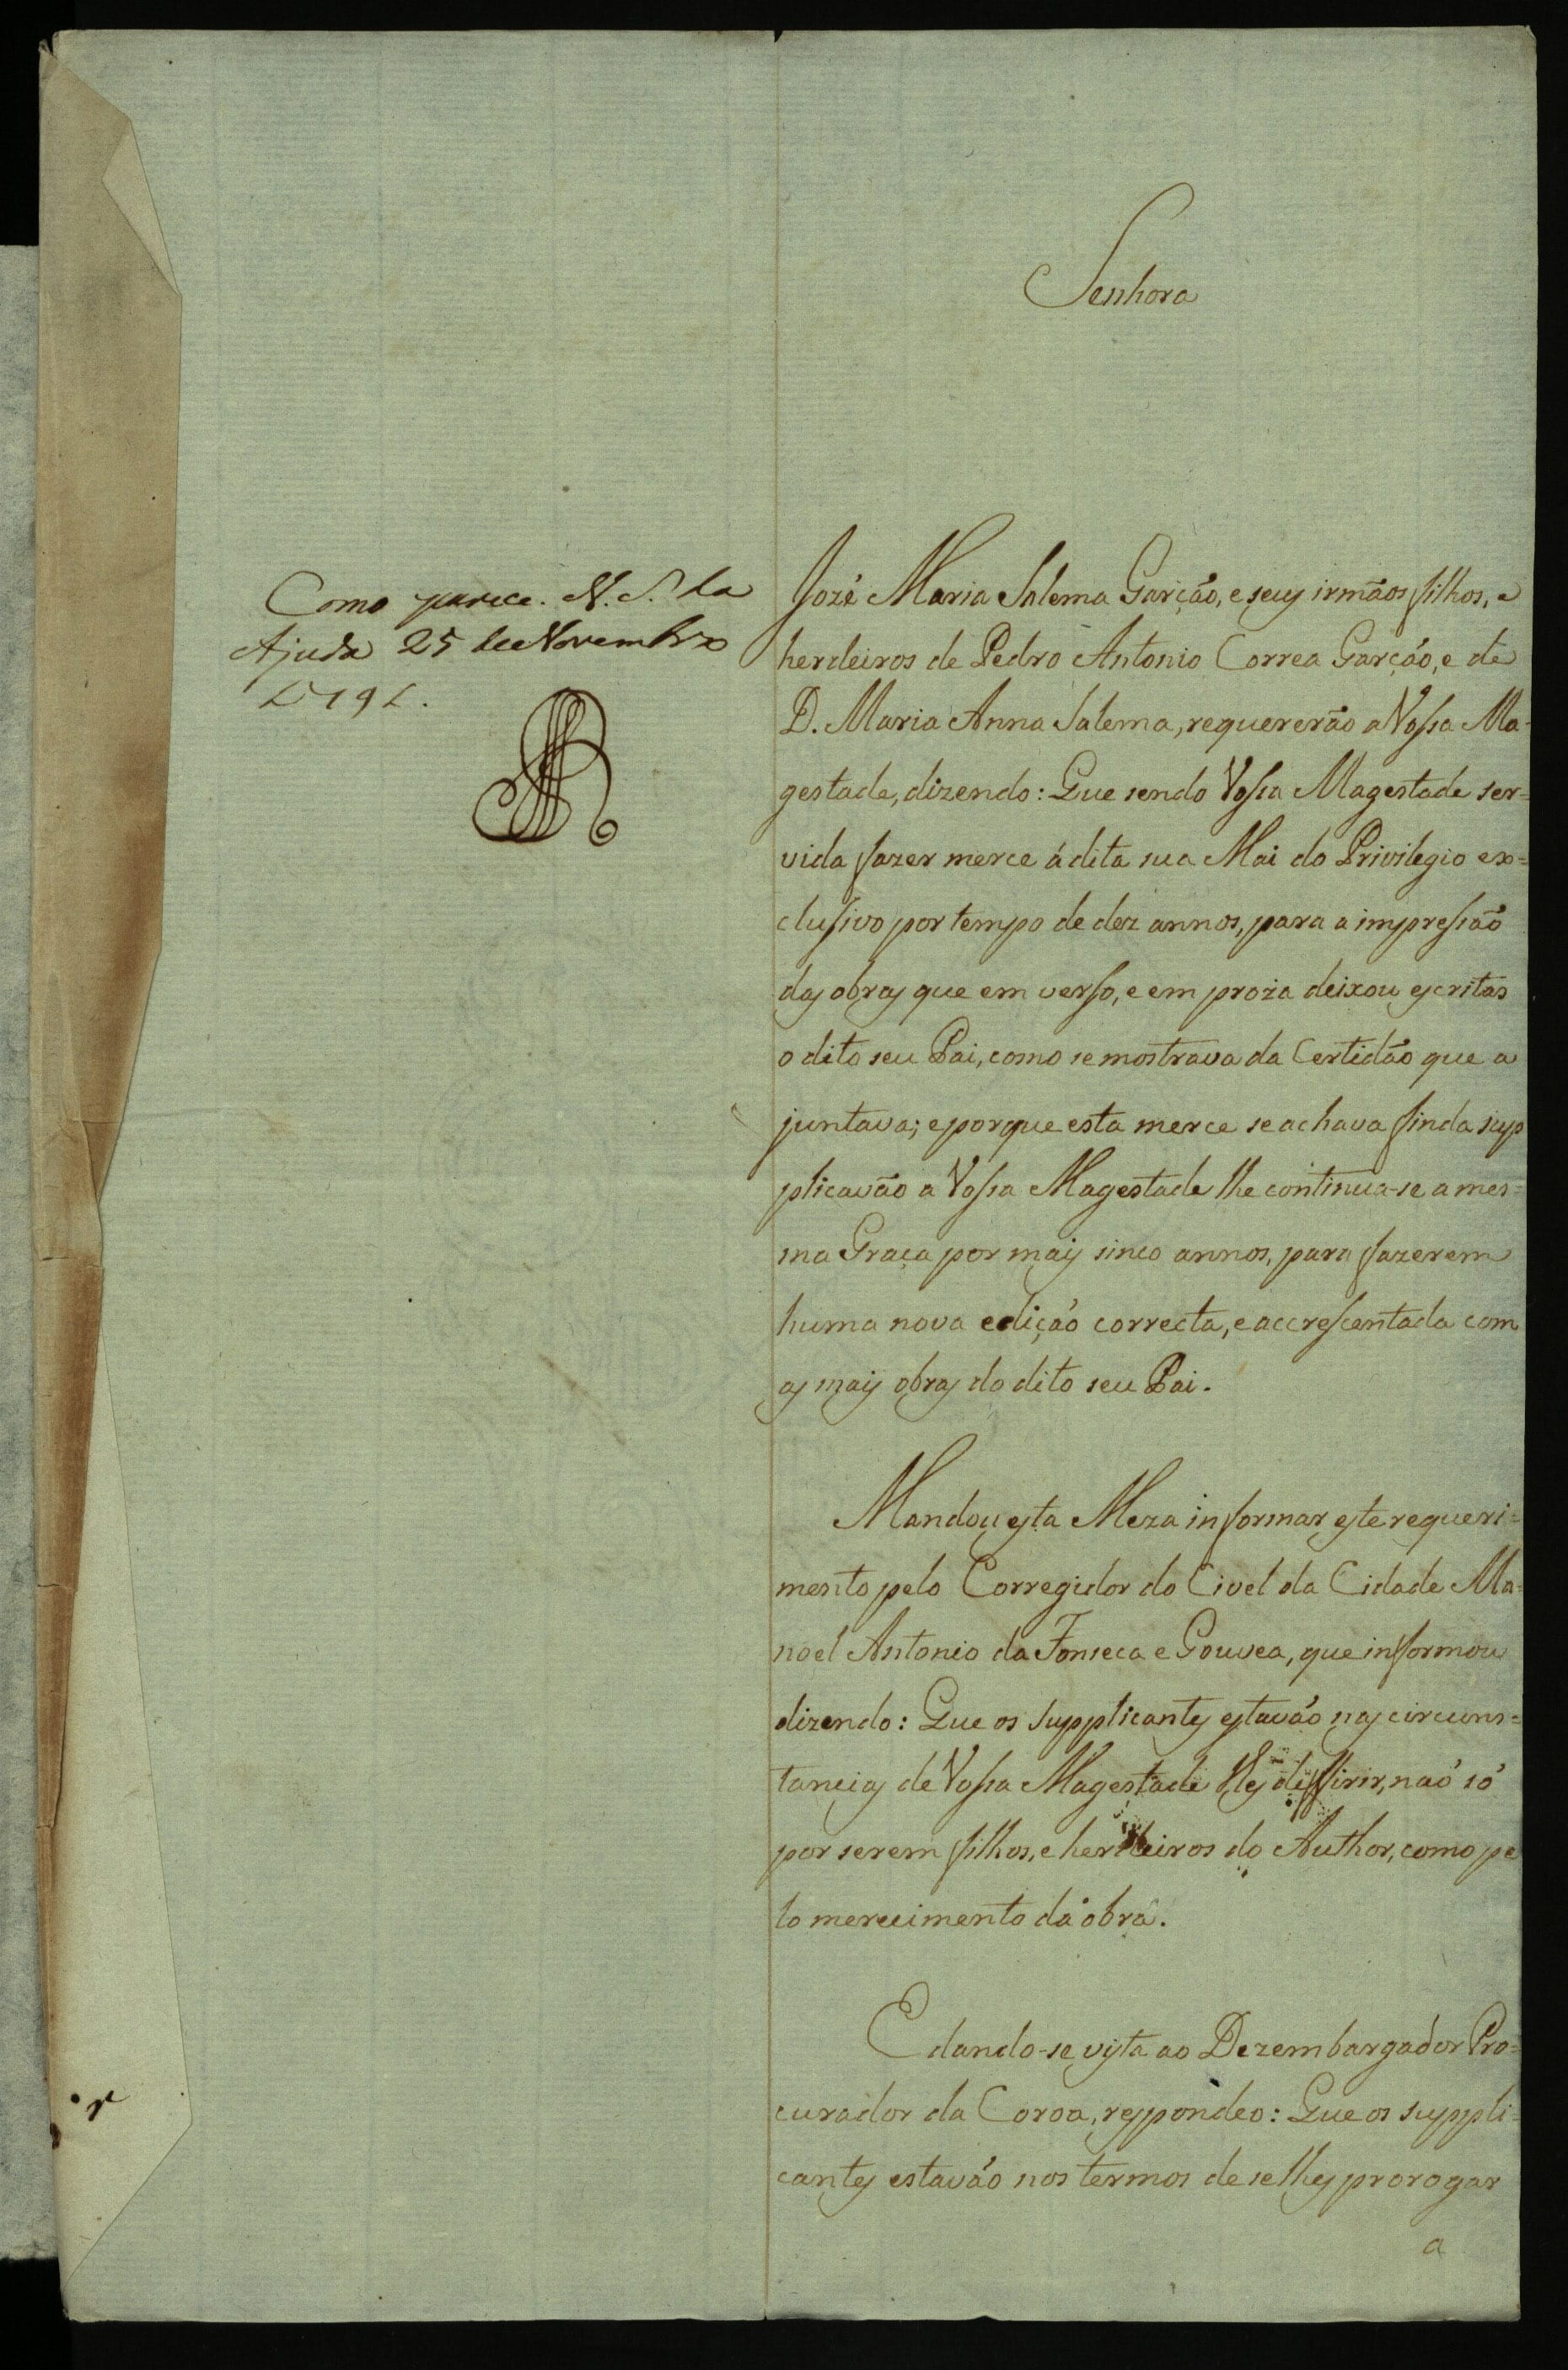 Senhora
Como parece. N. S. da
Ajuda 25 de Novembro
1791.
Jozé Maria Salema Garção, e seus irmãos filhos, e
herdeiros de Pedro Antonio Correa Garção, e de
D. Maria Anna Salema, requererão a Vossa Ma-
gestade, dizendo: Que sendo Vossa Magestade ser=
vida fazer merce á dita sua Mai do Privilegio ex=
clusivo por tempo de dez annos, para a impressão
das obras que em verso, e em proza deixou escritas
o dito seu Pai, como se mostrava da Certidão que a
juntava; e porque esta merce se achava finda sup
plicavão a Vossa Magestade lhe continua-se a mes=
ma Graça por mais sinco annos, para fazerem
huma nova edição correcta, e accrescentada com
as mais obras do dito seu Pai.
Mandou esta Meza informar este requeri=
mento pelo Corregidor do Civel da Cidade Ma=
noel Antonio da Fonseca e Gouvea, que informou
dizendo: Que os supplicantes estavão nas circuns=
tancias de Vossa Magestade lhes differir, naõ só
por serem filhos, e herdeiros do Author, como pe
lo merecimento da obra.
E dando-se vista ao Dezembargador Pro=
curador da Coroa, respondeo: Que os suppli=
cantes estavão nos termos de se lhes prorogar
a